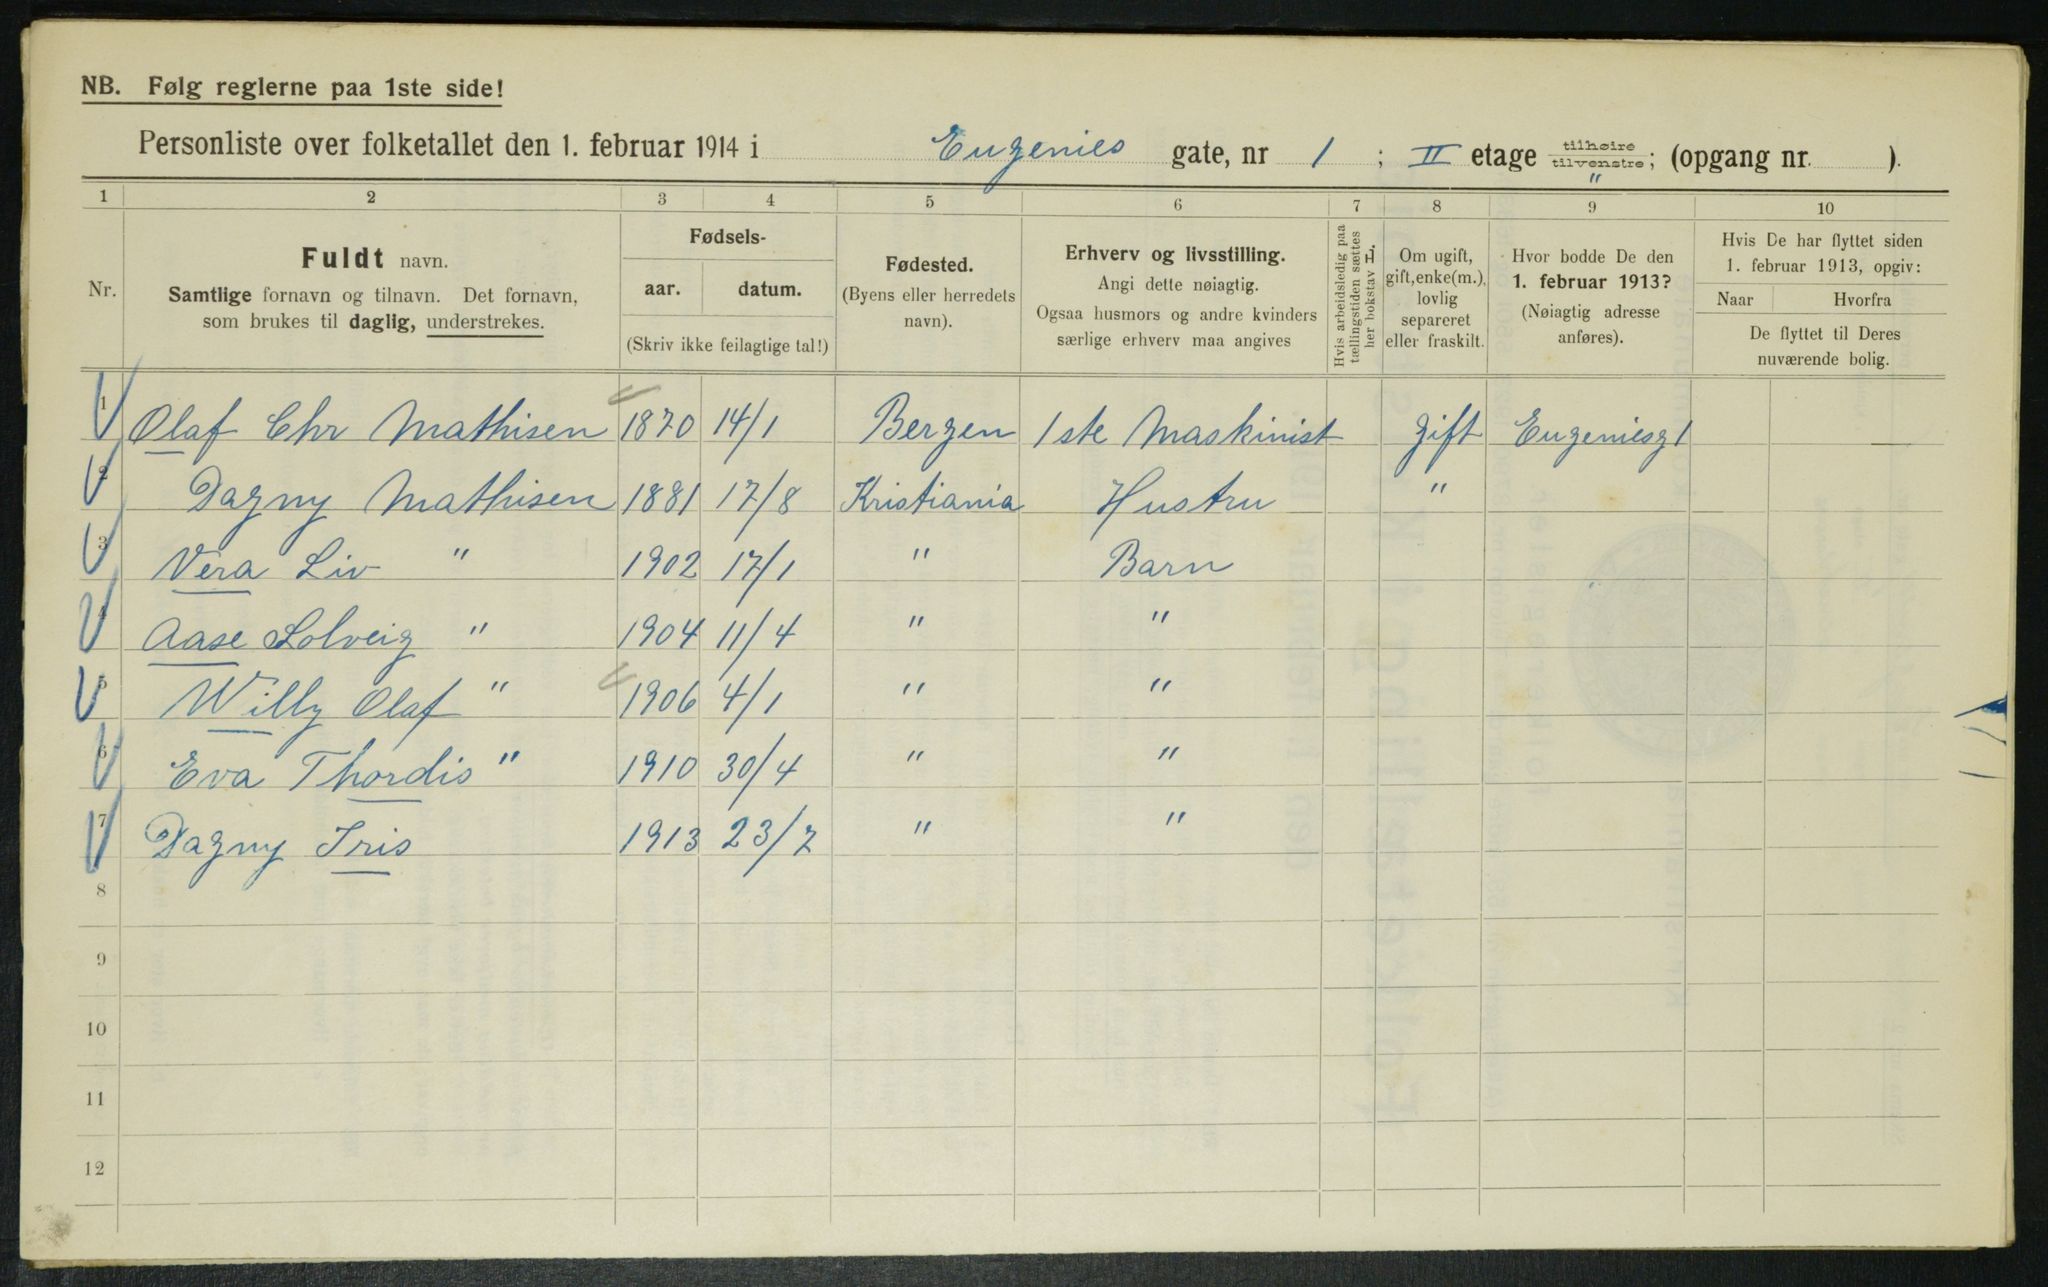 NB. Følg reglerne paa 1ste side!
Personliste over folketallet den 1. februar 1914 i Eugenies gate, nr 1 ; II etage tilhøire tilvenstre; (opgang nr. ).
"
1 2 3 4 5 6 7 8 9 10
Nr.
Fuldt navn.
Samtlige fornavn og tilnavn. Det fornavn,
som brukes til daglig, understrekes.
Fødsels-
aar. datum.
(Skriv ikke feilagtige tal!)
Fødested.
(Byens eller herredets
navn).
Erhverv og livsstilling.
Angi dette nøiagtig.
Ogsaa husmors og andre kvinders
særlige erhverv maa angives
Hvis arbeidsledig paa
tællingstiden sættes
her bokstav L.
Om ugift,
gift, enke(m.),
lovlig
separeret
eller fraskilt.
Hvor bodde De den
1. februar 1913?
(Nøiagtig adresse
anføres).
Hvis De har flyttet siden
1. februar 1913, opgiv:
Naar Hvorfra
De flyttet til Deres
nuværende bolig.
1 Olaf Chr Mathisen 1870 14/1 Bergen 1ste Maskinist gift Eugeniesg 1
2 Dagny Mathisen 1881 17/8 Kristiania Hustru "
3 Vera Liv " 1902 17/1 " Barn
4 Aase Solveig " 1904 11/4 " "
5 Willy Olaf " 1906 4/1 " "
6 Eva Thordis " 1910 30/4 " "
7 Dagny Iris 1913 23/7 " "
8
9
10
11
12